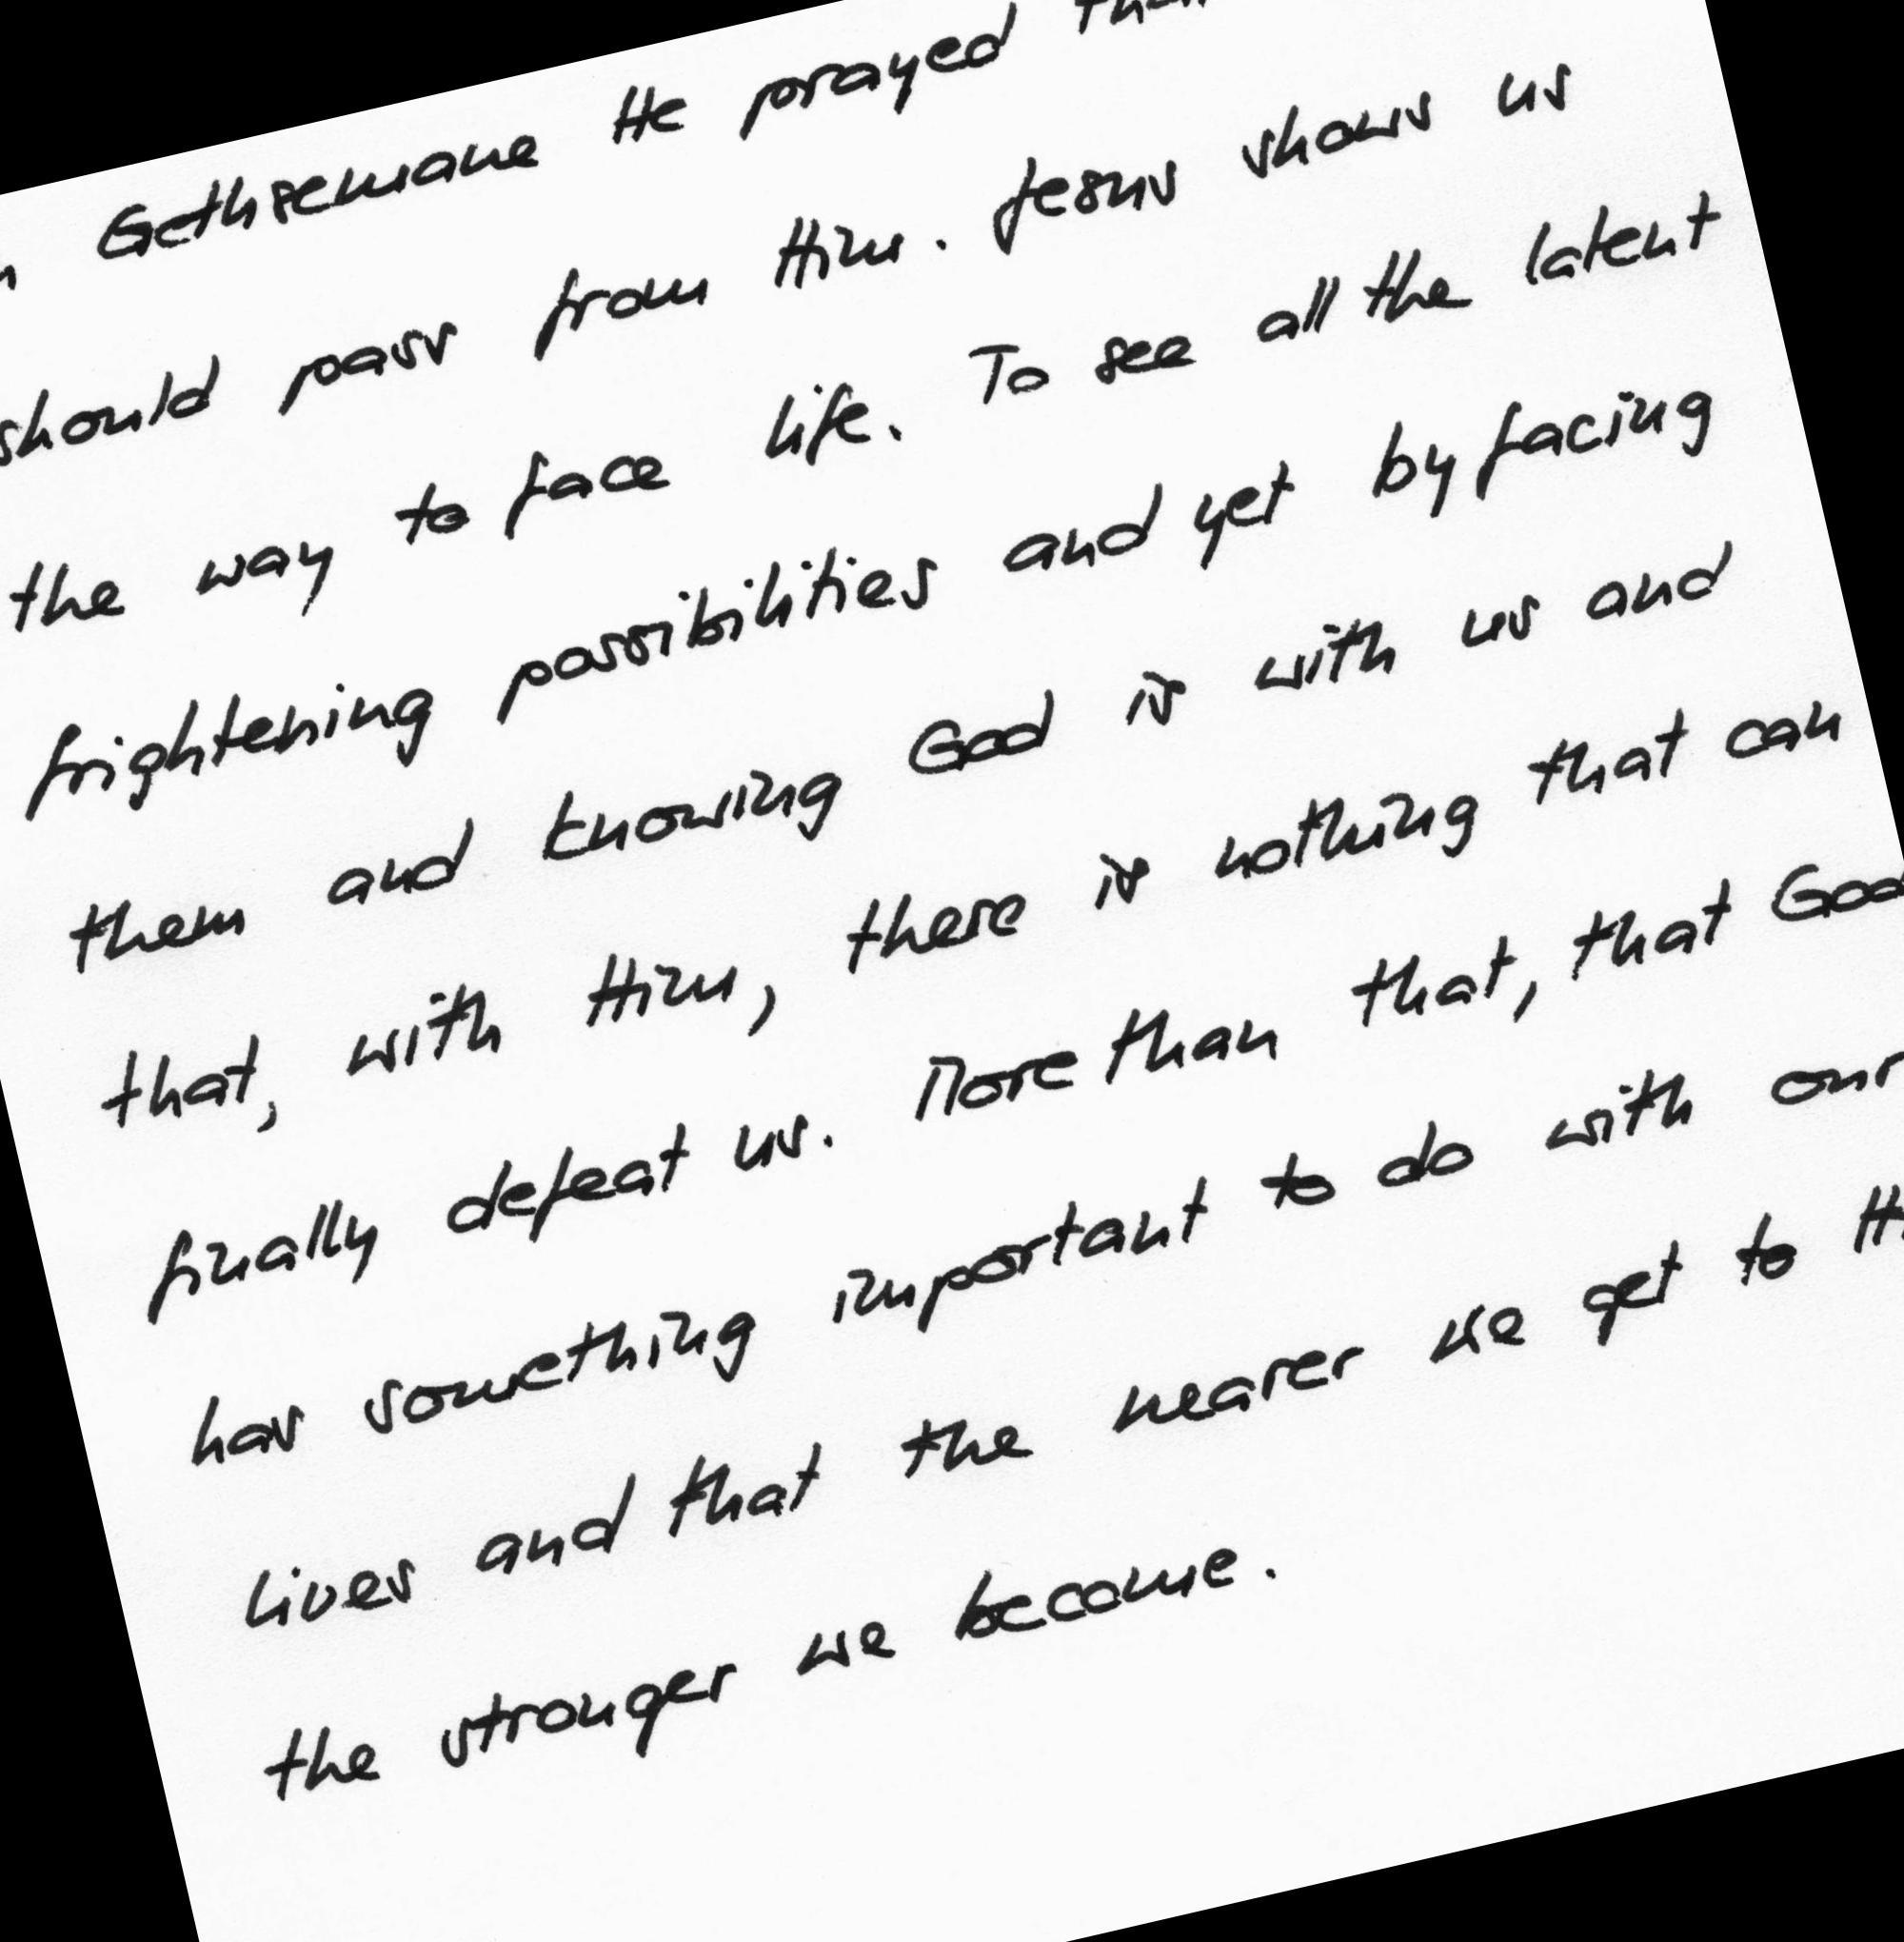 Gethsemane He prayed
should pass from Him. Jesus shows us
the way to face life. To see all the latent
frightening possibilities and yet by facing
them and knowing God is with us and
that, with Him, there is nothing that can
finally defeat us. More than that, that God
has something important to do with our
lives and that the nearer we get to
the stronger we become.